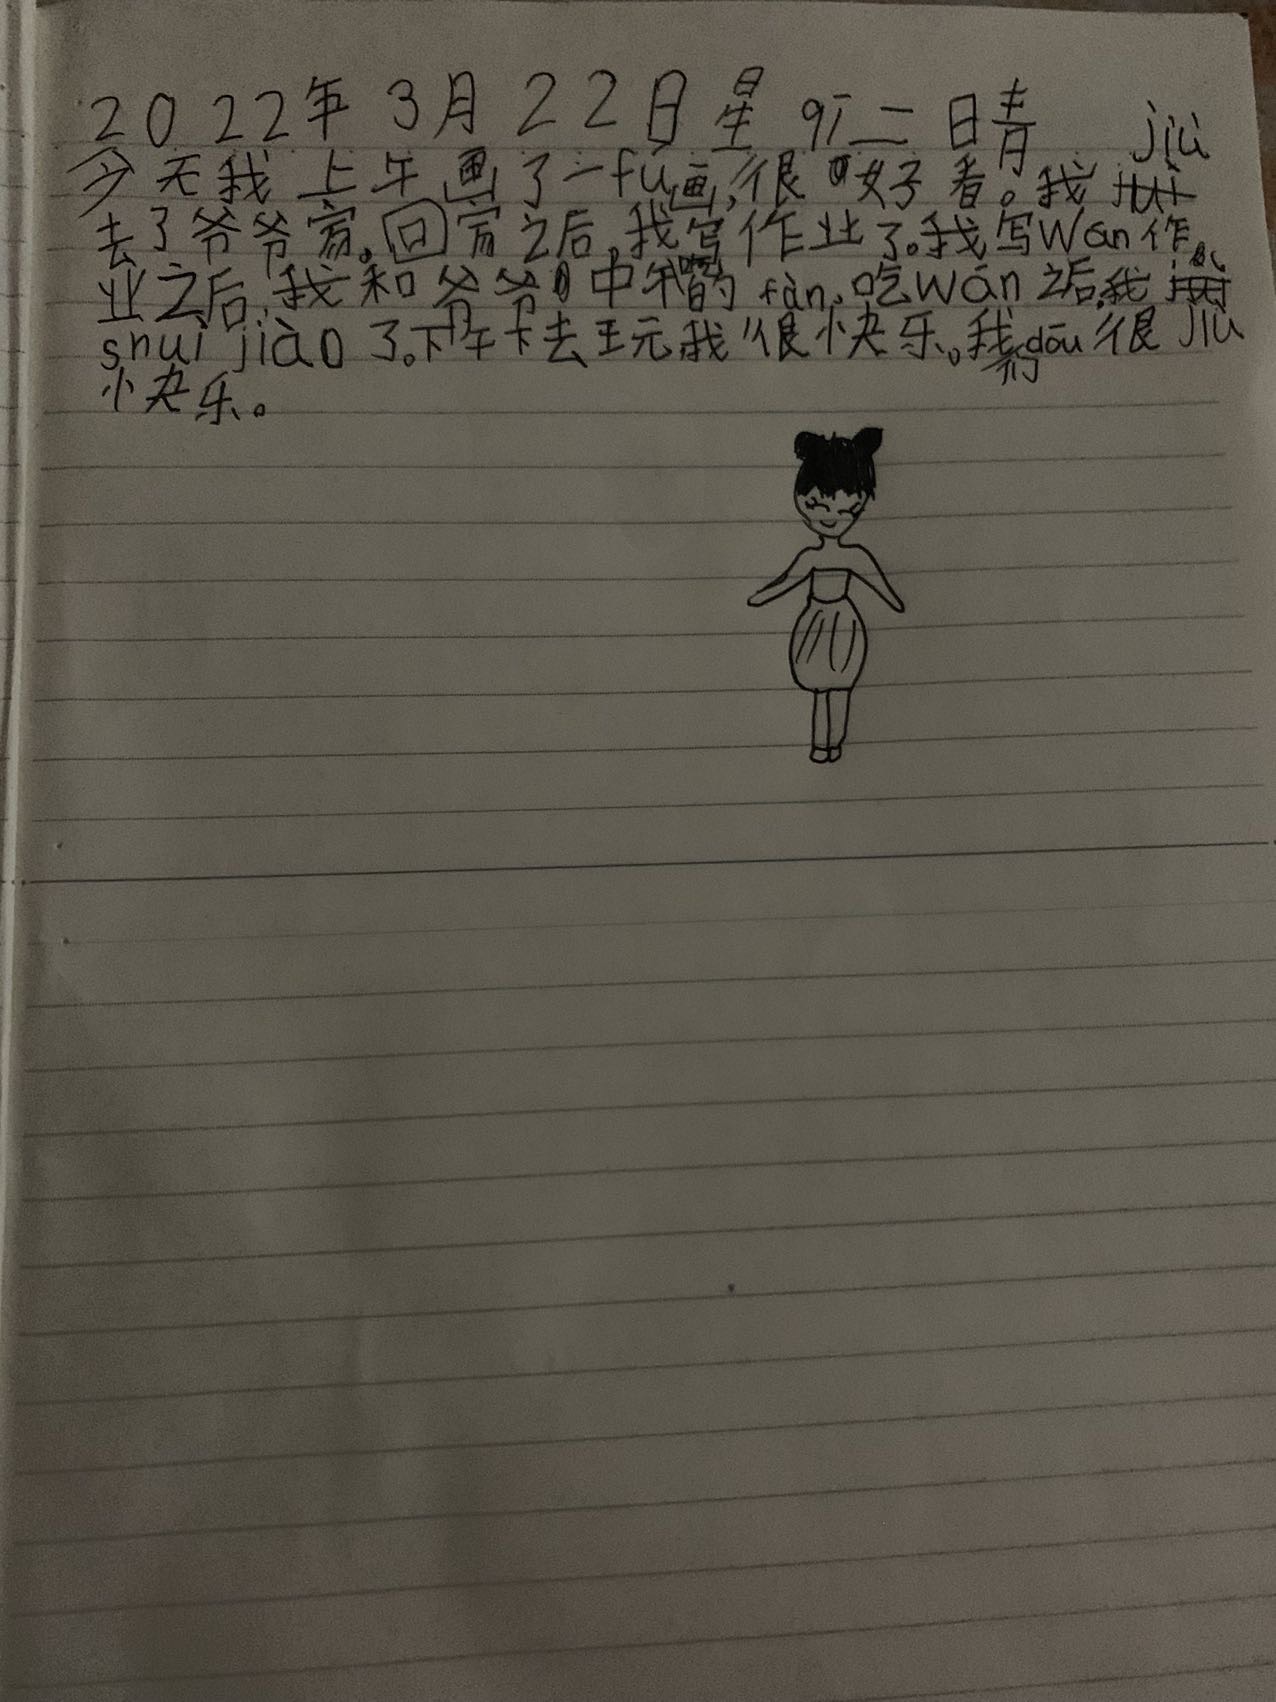 2022年3月22日星qī二晴
今天我上午画了一fú画,很好看。我jiù
去了爷爷家。回家之后,我写作业了。我写wán作
业之后,我和爷爷吃中午的fàn,吃wán之后,我jiù
shuì jiào了。下午下去玩我很快乐。我们dōu很
快乐。